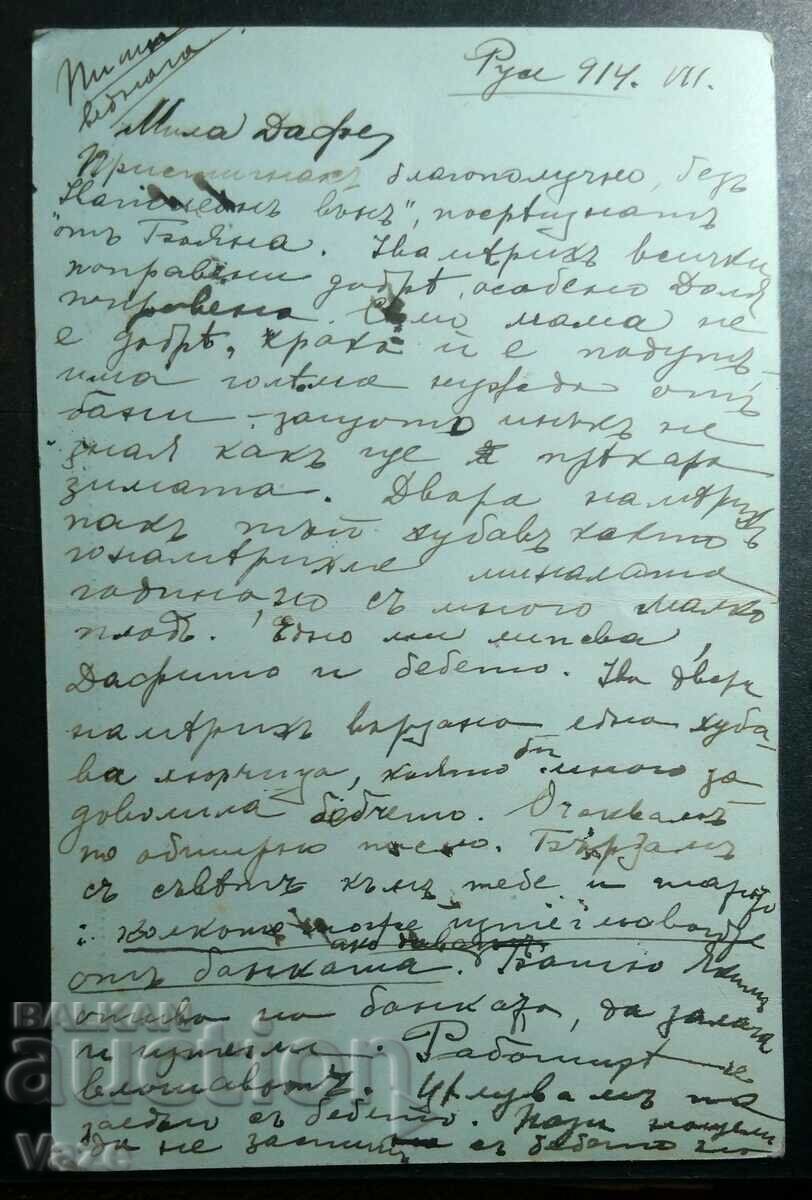 Пиши
веднага
Русе 914. VII.
Мила Дафе,
Пристигнахъ благополучно, безъ
вънъ", посрѣщнатъ
отъ Бояна. Намѣрихъ всички
поправени добрѣ, особено
поправена. Само мама не
е добрѣ, крака й е подутъ
има голѣма нужда отъ
бани - защото инъкъ не
зная какъ ще прѣкара
зимата. Двора намѣрихъ
пакъ тъй хубавъ както
го намѣрихме миналата
година, но съ много малко
плодъ. Едно ми липсва,
Дафито и бебето. На двора
намѣрихъ вързана една хуба-
ва, която би много за
доволила бебчето. Очаквамъ
по обширно писмо. Бързамъ
съ съвѣтъ къмъ тебе и
: колкото може
ако даватъ
отъ банката. Бати
отива на банката, да
и изтегли. Работитѣ се
влошаватъ. Цѣлувамъ та
заедно съ бебето. Пази
да не съ бебето
BALKAN
auction
Vaze